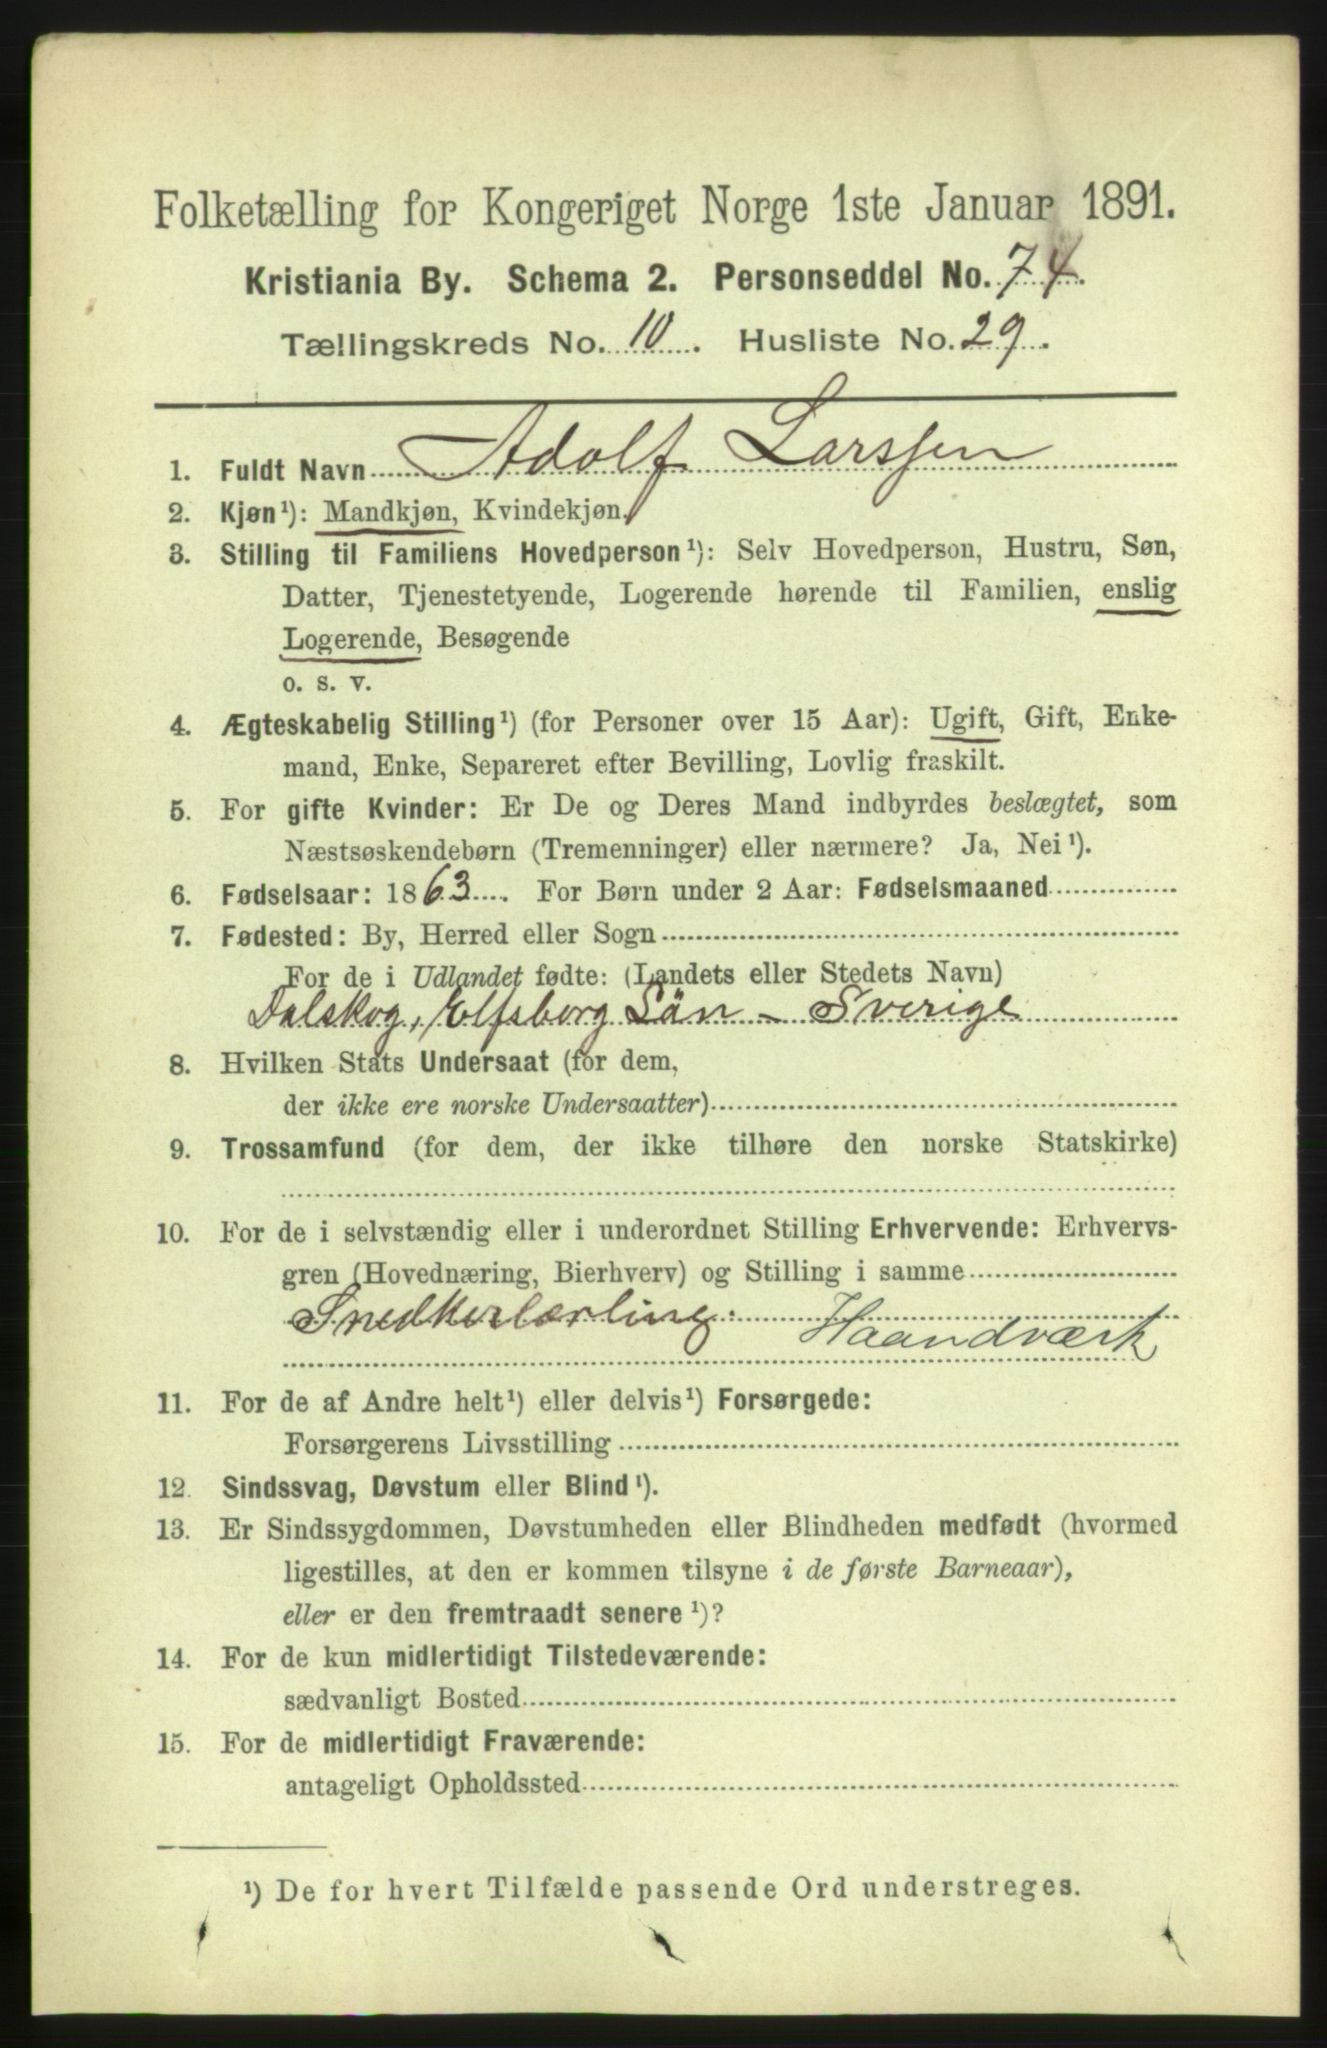 Folketælling for Kongeriget Norge 1ste Januar 1891.
Kristiania By. Schema 2. Personseddel No. 74.
Tællingskreds No. 10. Husliste No. 29.
1. Fuldt Navn Adolf Larssen
2. Kjøn¹): Mandkjøn, Kvindekjøn.
3. Stilling til Familiens Hovedperson¹): Selv Hovedperson, Hustru, Søn,
Datter, Tjenestetyende, Logerende hørende til Familien, enslig
Logerende, Besøgende
o. s. v.
4. Ægteskabelig Stilling¹) (for Personer over 15 Aar): Ugift, Gift, Enke-
mand, Enke, Separeret efter Bevilling, Lovlig fraskilt.
5. For gifte Kvinder: Er De og Deres Mand indbyrdes beslægtet, som
Næstsøskendebørn (Tremenninger) eller nærmere? Ja, Nei¹).
6. Fødselsaar: 1863. For Børn under 2 Aar: Fødselsmaaned
7. Fødested: By, Herred eller Sogn
For de i Udlandet fødte: (Landets eller Stedets Navn)
Dalskog, Elfsborg Län - Sverige
8. Hvilken Stats Undersaat (for dem,
der ikke ere norske Undersaatter)
9. Trossamfund (for dem, der ikke tilhøre den norske Statskirke)
10. For de i selvstændig eller i underordnet Stilling Erhvervende: Erhvervs-
gren (Hovednæring, Bierhverv) og Stilling i samme
Snedkerlærling. Haandværk
11. For de af Andre helt¹) eller delvis¹) Forsørgede:
Forsørgerens Livsstilling
12. Sindssvag, Døvstum eller Blind¹).
13. Er Sindssygdommen, Døvstumheden eller Blindheden medfødt (hvormed
ligestilles, at den er kommen tilsyne i de første Barneaar),
eller er den fremtraadt senere¹)?
14. For de kun midlertidigt Tilstedeværende:
sædvanligt Bosted
15. For de midlertidigt Fraværende:
antageligt Opholdssted
¹) De for hvert Tilfælde passende Ord understreges.